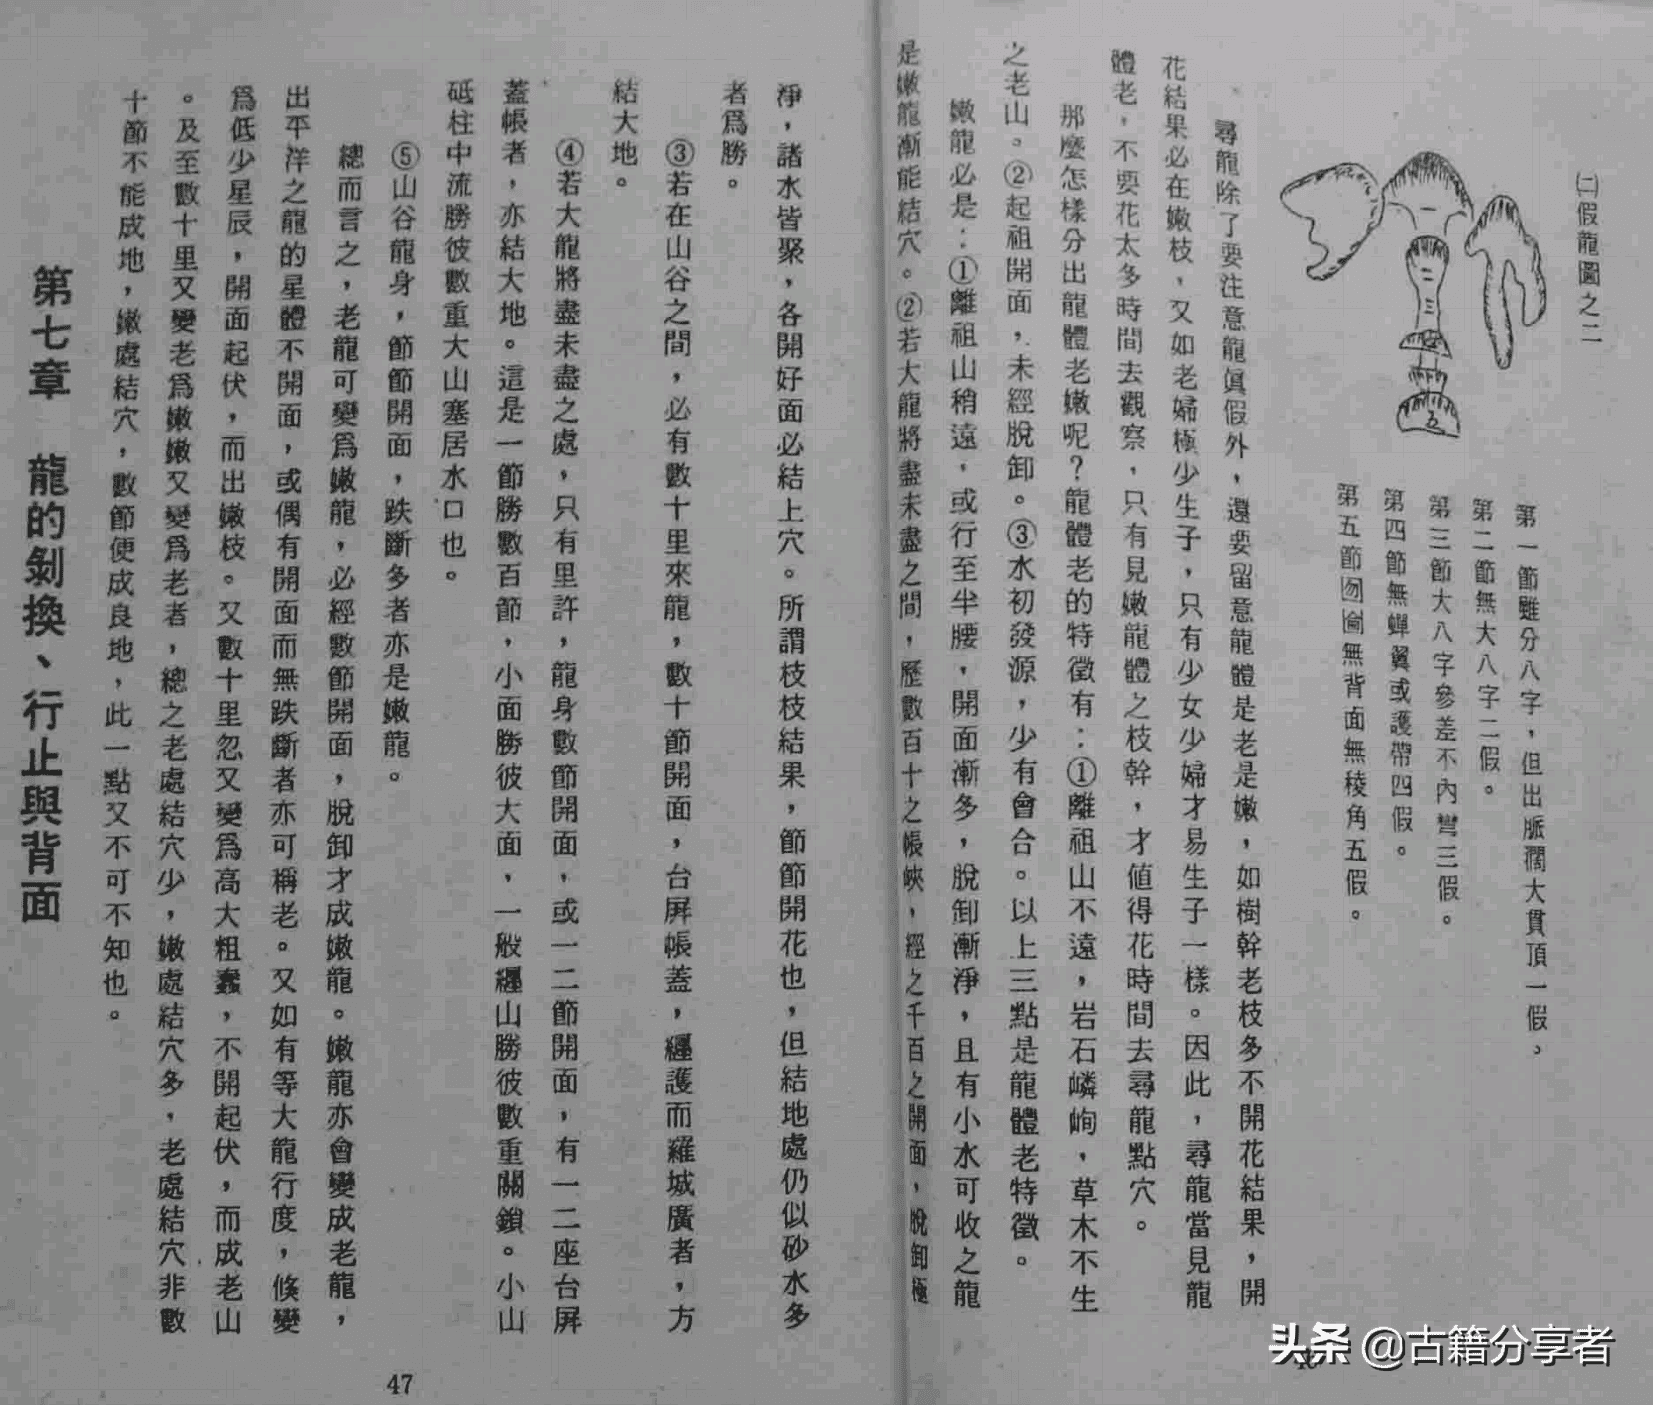 ㈡假龍圖之二
一
二
三
四
五
第一節雖分八字，但出脈濶大貫頂一假，
第二節無大八字二假。
第三節大八字參差不內彎三假。
第四節無蟬翼或護帶四假。
第五節囫圇無背面無稜角五假。
尋龍除了要注意龍眞假外，還要留意龍體是老是嫩，如樹幹老枝多不開花結果，開
花結果必在嫩枝，又如老婦極少生子，只有少女少婦才易生子一樣。因此，尋龍當見龍
體老，不要花太多時間去觀察，只有見嫩龍體之枝幹，才值得花時間去尋龍點穴。
那麼怎樣分出龍體老嫩呢？龍體老的特徵有：①離祖山不遠，岩石嶙峋，草木不生
之老山。②起祖開面，未經脫卸。③水初發源，少有會合。以上三點是龍體老特徵。
嫩龍必是：①離祖山稍遠，或行至半腰，開面漸多，脫卸漸淨，且有小水可收之龍
是嫩龍漸能結穴。②若大龍將盡未盡之間，歷數百十之帳峽，經之千百之開面，脫卸極
淨，諸水皆聚，各開好面必結上穴。所謂枝枝結果，節節開花也，但結地處仍似砂水多
者爲勝。
③若在山谷之間，必有數十里來龍，數十節開面，台屏帳蓋，纏護而羅城廣者，方
結大地。
④若大龍將盡未盡之處，只有里許，龍身數節開面，或一二節開面，有一二座台屏
蓋帳者，亦結大地。這是一節勝數百節，小面勝彼大面，一般纏山勝彼數重關鎖。小山
砥柱中流勝彼數重大山塞居水口也。
⑤山谷龍身，節節開面，跌斷多者亦是嫩龍。
總而言之，老龍可變爲嫩龍，必經數節開面，脫卸才成嫩龍。嫩龍亦會變成老龍，
出平洋之龍的星體不開面，或偶有開面而無跌斷者亦可稱老。又如有等大龍行度，倏變
爲低少星辰，開面起伏，而出嫩枝。又數十里忽又變爲高大粗蠢，不開起伏，而成老山
。及至數十里又變老爲嫩嫩又變爲老者，總之老處結穴少，嫩處結穴多，老處結穴非數
十節不能成地，嫩處結穴，數節便成良地，此一點又不可不知也。
第七章　龍的剝換、行止與背面
47
头条 @古籍分享者